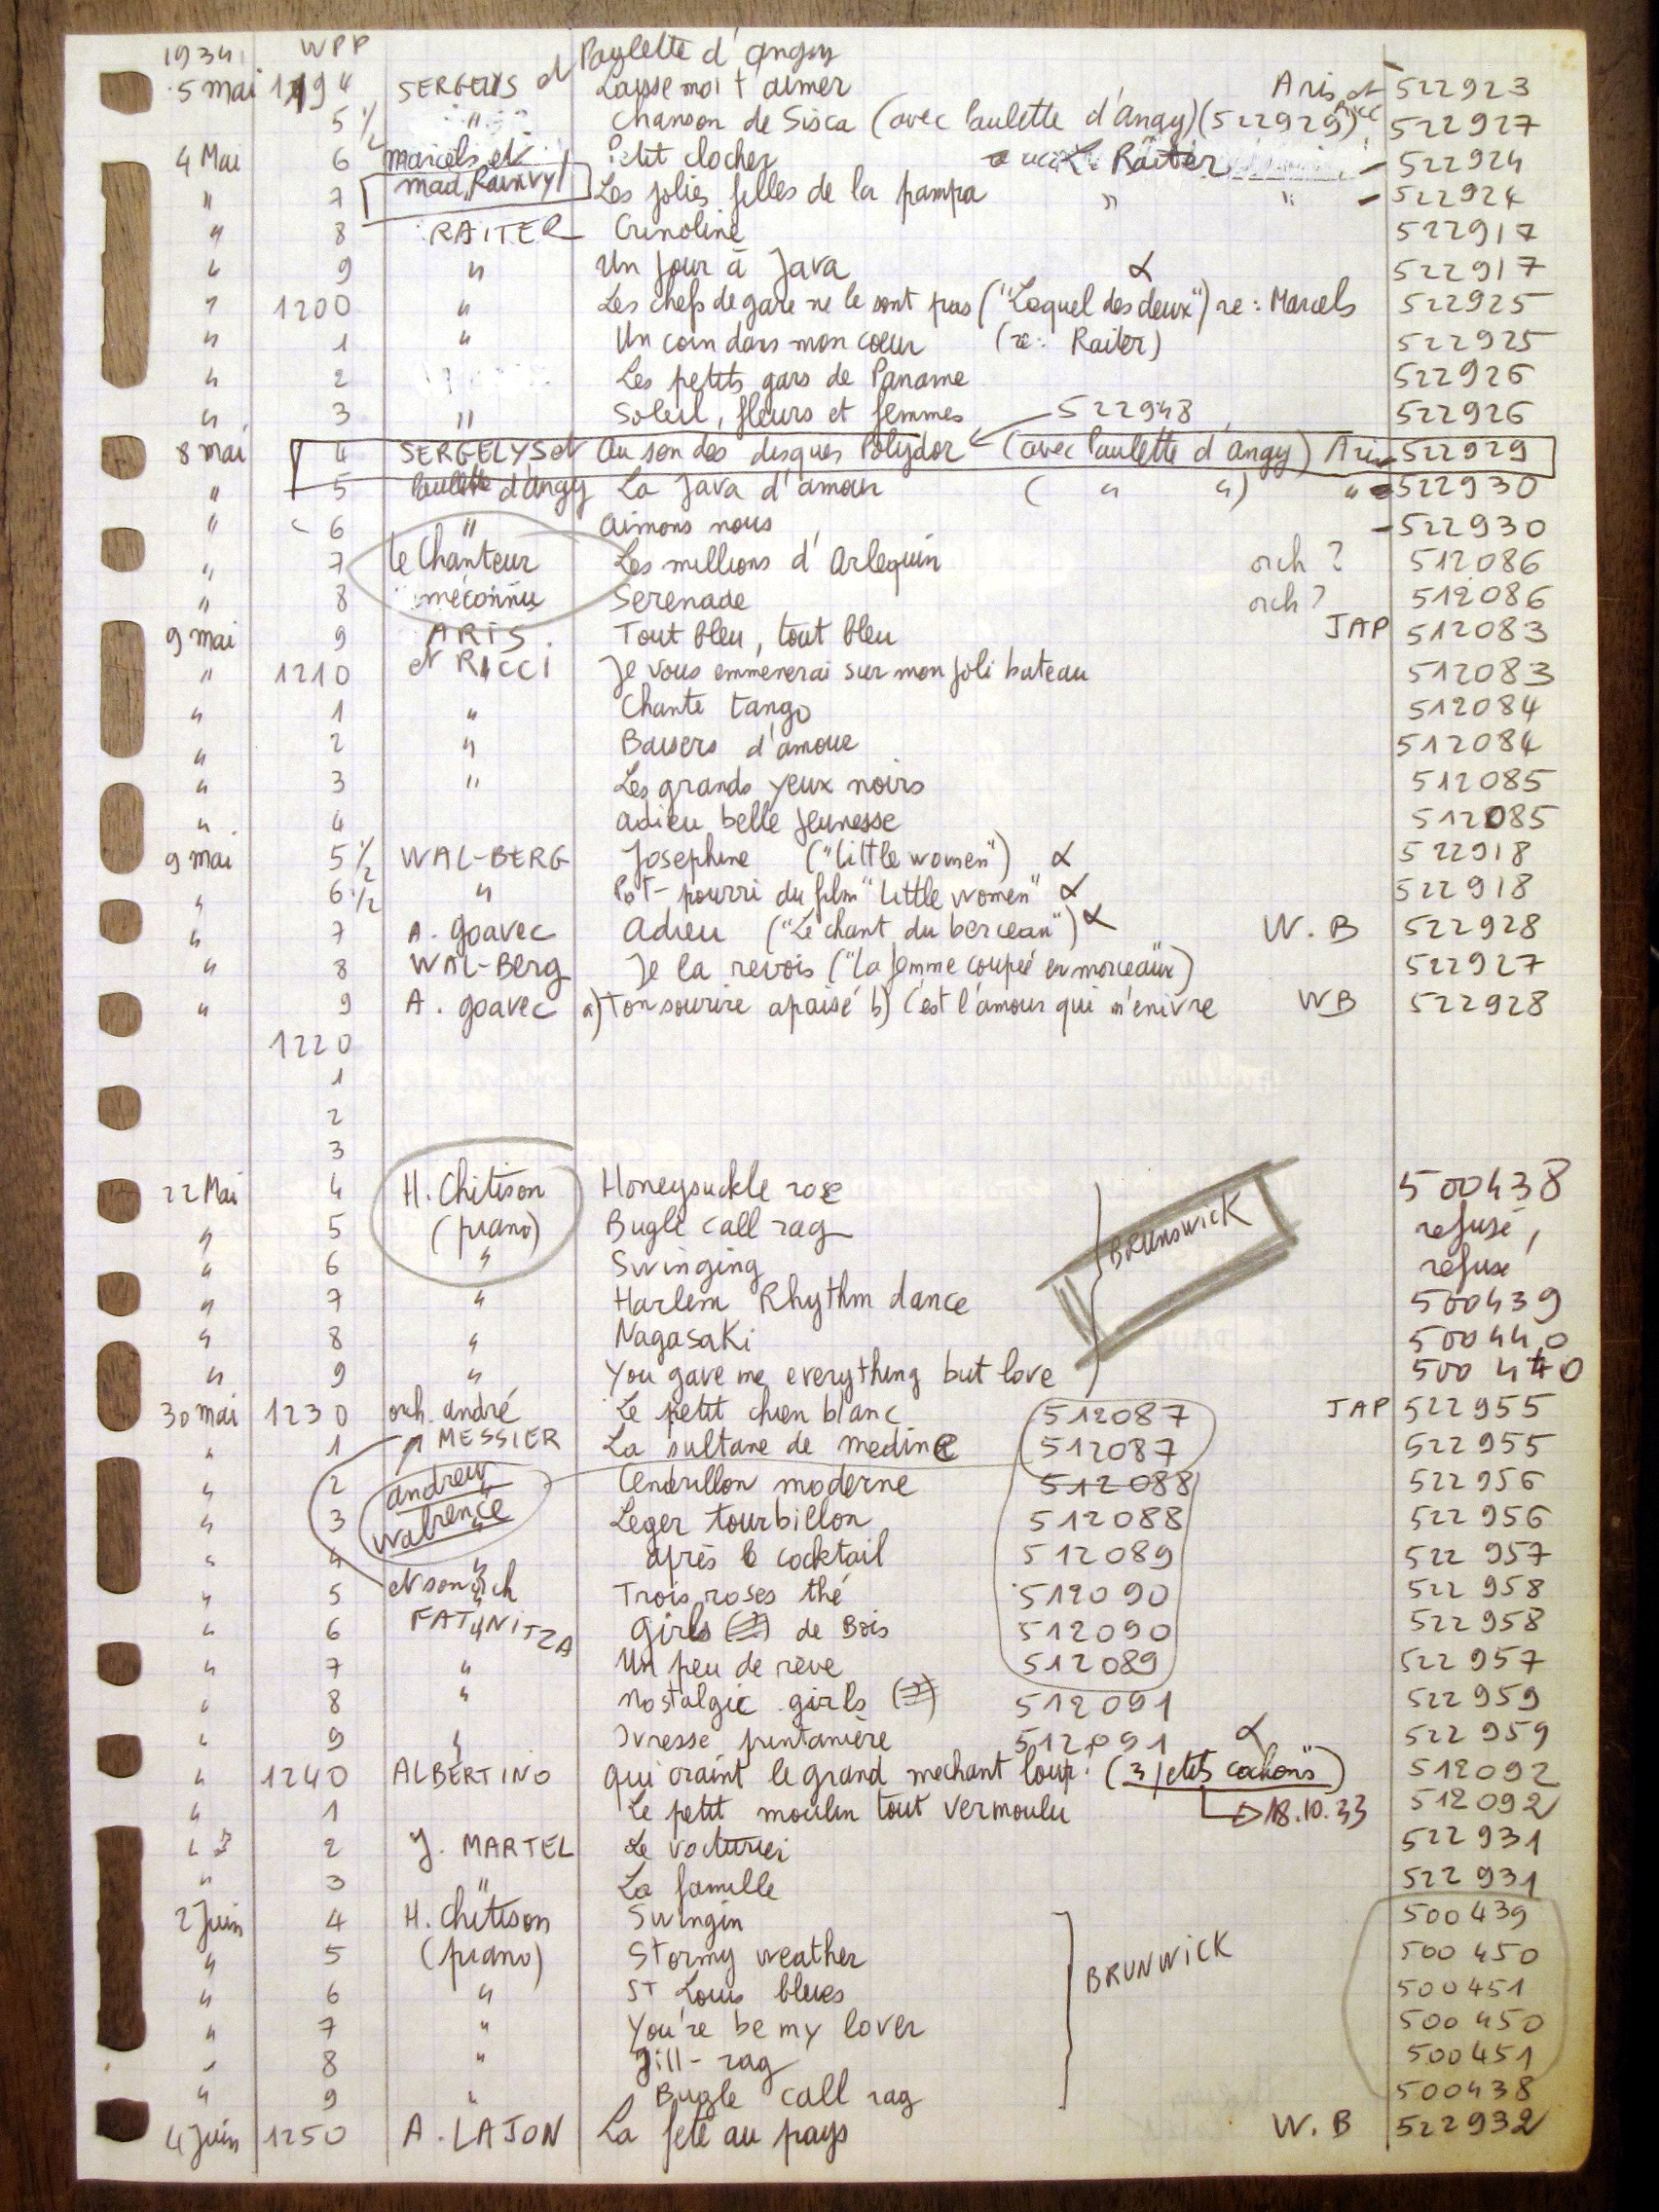 1934 WPP Paulette d'angy
5 mai 1194 SERGELYS et Laisse moi t'aimer Aris et 522923
5 1/2 " Chanson de Sisca (avec Paulette d'Angy) (522929) Ricci 522927
4 Mai 6 marcels et Petit clocher Raiter - 522924
" 7 mad. Rainvyl Les jolies filles de la pampa " " - 522924
" 8 RAITER Crinoline 522917
" 9 " Un jour à Java α 522917
" 1200 " Les chefs de gare ne le sont pas ("Lequel des deux") re: Marcels 522925
" 1 " Un coin dans mon coeur (re: Raiter) 522925
" 2 Les petits gars de Paname 522926
" 3 " Soleil, fleurs et femmes 522948 522926
8 mai 4 SERGELYS et Au son des disques Polydor (avec Paulette d'angy) Aris 522929
" 5 Paulette d'angy La Java d'amour ( " ") " 522930
" 6 " Aimons nous - 522930
" 7 le Chanteur Les millions d'Arlequin orch ? 512086
" 8 méconnu Serenade orch ? 512086
9 mai 9 ARIS Tout bleu, tout bleu JAP 512083
" 1210 et RICCI Je vous emmenerai sur mon joli bateau 512083
" 1 " Chante tango 512084
" 2 " Baisers d'amour 512084
" 3 " Les grands yeux noirs 512085
" 4 adieu belle jeunesse 512085
9 mai 5 1/2 WAL-BERG Josephine ("little women") α 522918
" 6 1/2 " Pot-pourri du film "little women" α 522918
" 7 A. goavec Adieu ("Le chant du berceau") α W.B 522928
" 8 WAL-Berg Je la revois ("la femme coupée en morceaux") 522927
" 9 A. goavec a) Ton sourire apaisé b) C'est l'amour qui m'enivre WB 522928
1220
1
2
3
22 Mai 4 H. Chitison Honeysuckle rose 500438
" 5 (piano) Bugle call rag BRUNSWICK refusé,
" 6 " Swinging refusé
" 7 " Harlem Rhythm dance 500439
" 8 " Nagasaki 500440
" 9 " You gave me everything but love 500440
30 mai 1230 orch. andré Le petit chien blanc 512087 JAP 522955
" 1 MESSIER La sultane de medine 512087 522955
" 2 andrew Cendrillon moderne 512088 522956
" 3 walrence Leger tourbillon 512088 522956
" 4 " après le cocktail 512089 522957
" 5 et son orch Trois roses thé 512090 522958
" 6 FATUNITZA girls de Bois 512090 522958
" 7 " Un peu de reve 512089 522957
" 8 " nostalgic girls 512091 522959
" 9 " Ivresse printanière 512091 α 522959
" 1240 ALBERTINO qui craint le grand mechant loup? (3 petits cochons") 512092
" 1 Le petit moulin tout vermoulu 18.10.33 512092
" 2 J. MARTEL Le voiturier 522931
" 3 " La famille 522931
2 Juin 4 H. Chitison Swingin 500439
" 5 (piano) Stormy weather BRUNWICK 500450
" 6 " ST Louis blues 500451
" 7 " You're be my lover 500450
" 8 " Jill-rag 500451
" 9 " Bugle call rag 500438
4 Juin 1250 A. LAJON La fete au pays W.B 522932